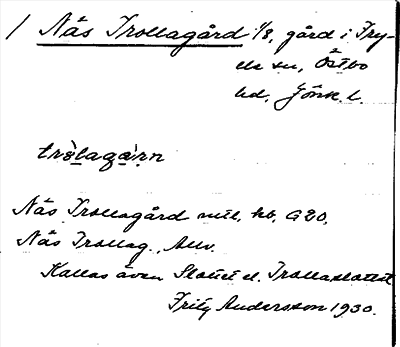 / Näs Trollagård 1/8, gård i Fry-
ele sn, Östbo
hd, Jönk. l.
trò̀lagàrn
Näs Trollagård mtl, kb, G20,
Näs Trollag., Allv.
Kallas även Slottet el. Trollaslottet
Fritz Andersson 1930.